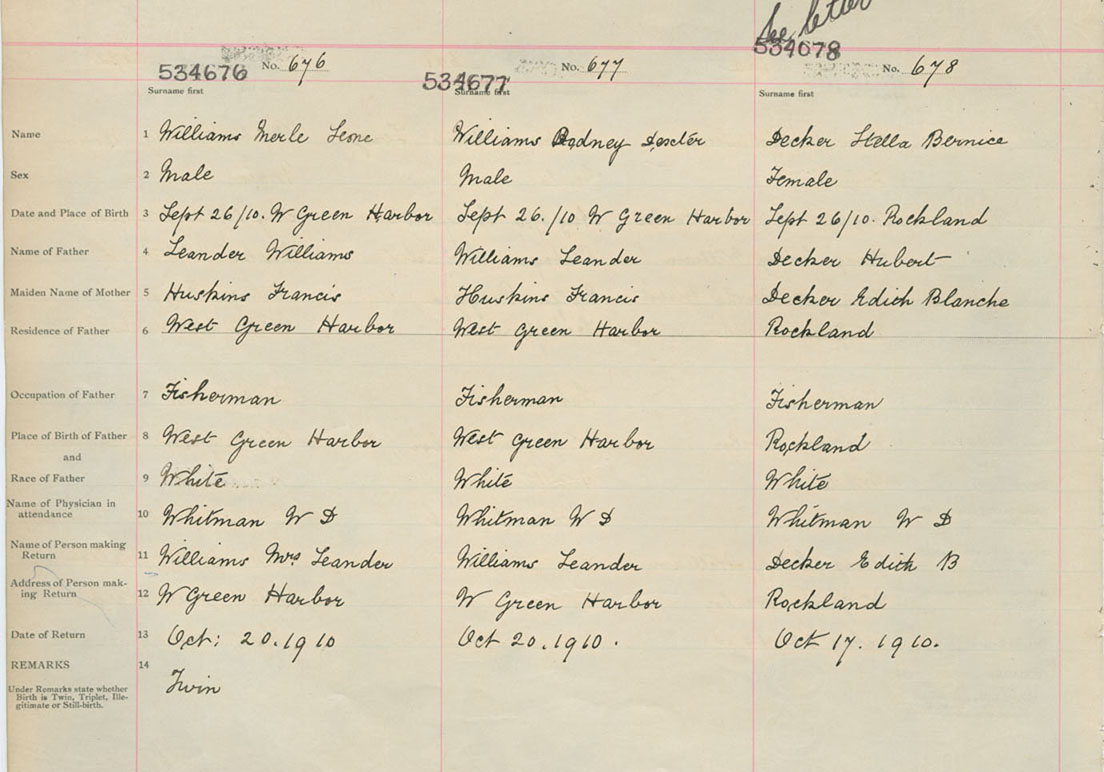 See letter
534676 No. 676
534677 No. 677
534678 No. 678
Surname first
Surname first
Surname first
Name 1 Williams Merle Leone Williams Rodney Dexter Decker Stella Bernice
Sex 2 Male Male Female
Date and Place of Birth 3 Sept 26/10. W Green Harbor Sept 26./10 W Green Harbor Sept 26/10. Rockland
Name of Father 4 Leander Williams Williams Leander Decker Hubert
Maiden Name of Mother 5 Huskins Francis Huskins Francis Decker Edith Blanche
Residence of Father 6 West Green Harbor West Green Harbor Rockland
Occupation of Father 7 Fisherman Fisherman Fisherman
Place of Birth of Father 8 West Green Harbor West Green Harbor Rockland
and
Race of Father 9 White White White
Name of Physician in
attendance 10 Whitman W D Whitman W D Whitman W D
Name of Person making
Return 11 Williams Mrs Leander Williams Leander Decker Edith B
Address of Person mak-
ing Return 12 W Green Harbor W Green Harbor Rockland
Date of Return 13 Oct: 20.1910 Oct 20.1910. Oct 17. 1910.
REMARKS 14
Twin
Under Remarks state whether
Birth is Twin, Triplet, Ille-
gitimate or Still-birth.